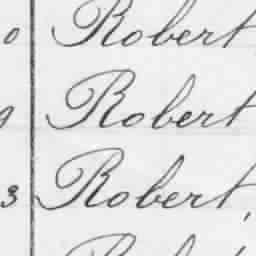 0 Robert
9 Robert
3 Robert,